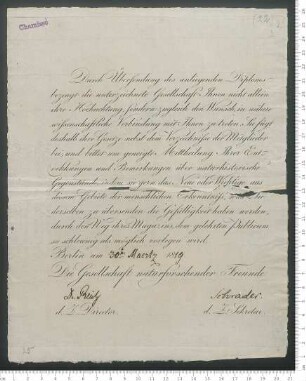 Chamisso
Durch Übersendung des anliegenden Diploms
bezeugt die unterzeichnete Gesellschaft Ihnen nicht allein
ihre Hochachtung, sondern zugleich den Wunsch in nähere
wissenschaftliche Verbindung mit Ihnen zu treten. Sie fügt
deshalb ihre Gesetze nebst dem Verzeichnisse der Mitglieder
bei, und bittet um geneigte Mittheilung Ihrer Ent-
deckungen und Bemerkungen über naturhistorische
Gegenstände, indem sie gern das Neue oder Wichtige aus
diesem Gebiete der menschlichen Erkenntniss,
derselben zu übersenden die Gefälligkeit haben werden,
durch den Weg ihres Magazins dem gelehrten Publicum
so schleunig als möglich vorlegen wird.
Berlin am 30 Maerz 1819
Die Gesellschaft naturforschender Freunde
Schrader
d. Z. Director. d. Z. Secretar.